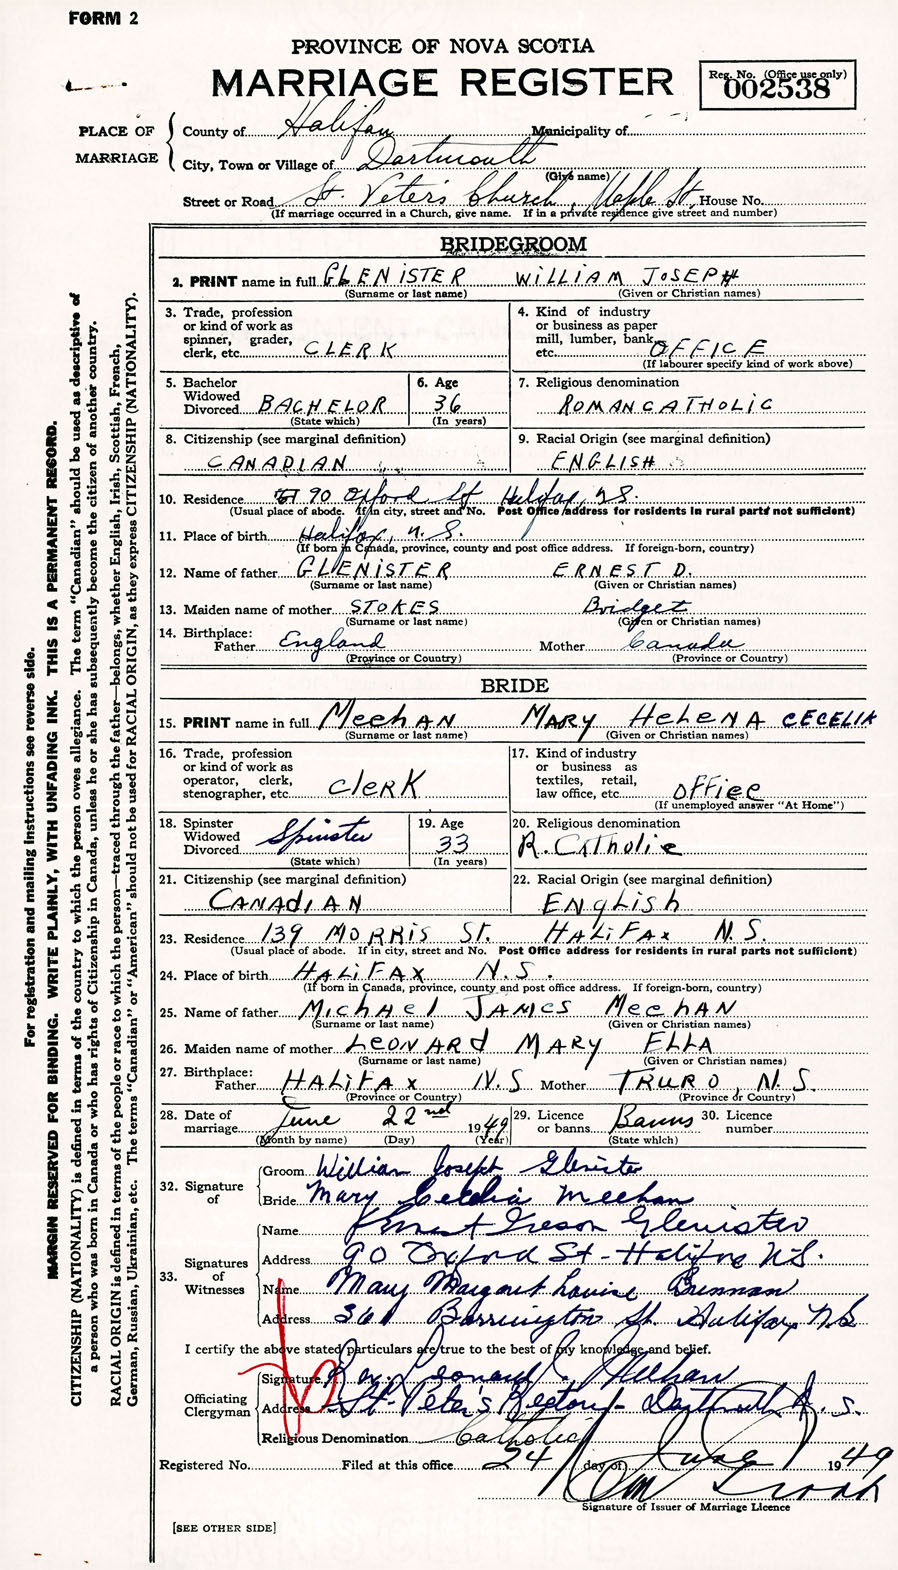 FORM 2
PROVINCE OF NOVA SCOTIA
MARRIAGE REGISTER
Reg. No. (Office use only)
002538
PLACE OF MARRIAGE
County of Halifax Municipality of
City, Town or Village of Dartmouth
(Give name)
Street or Road St. Peter's Church, Maple St. House No.
(If marriage occurred in a Church, give name. If in a private residence give street and number)
BRIDEGROOM
2. PRINT name in full GLENISTER WILLIAM JOSEPH
(Surname or last name) (Given or Christian names)
3. Trade, profession or kind of work as spinner, grader, clerk, etc. CLERK
4. Kind of industry or business as paper mill, lumber, bank, etc. OFFICE
(If labourer specify kind of work above)
5. Bachelor Widowed Divorced BACHELOR
(State which)
6. Age 36
(In years)
7. Religious denomination
ROMAN CATHOLIC
8. Citizenship (see marginal definition)
CANADIAN
9. Racial Origin (see marginal definition)
ENGLISH
10. Residence 90 Oxford St Halifax, N.S.
(Usual place of abode. If in city, street and No. Post Office address for residents in rural parts not sufficient)
11. Place of birth Halifax, N.S.
(If born in Canada, province, county and post office address. If foreign-born, country)
12. Name of father GLENISTER ERNEST D.
(Surname or last name) (Given or Christian names)
13. Maiden name of mother STOKES Bridget
(Surname or last name) (Given or Christian names)
14. Birthplace:
Father England Mother Canada
(Province or Country) (Province or Country)
BRIDE
15. PRINT name in full MeehAN MARY HeLeNA CECELIA
(Surname or last name) (Given or Christian names)
16. Trade, profession or kind of work as operator, clerk, stenographer, etc. clerK
17. Kind of industry or business as textiles, retail, law office, etc. office
(If unemployed answer "At Home")
18. Spinster Widowed Divorced Spinster
(State which)
19. Age 33
(In years)
20. Religious denomination
R. Catholic
21. Citizenship (see marginal definition)
CANAdIAN
22. Racial Origin (see marginal definition)
ENglish
23. Residence 139 MORRIS ST. HALIFAX N.S.
(Usual place of abode. If in city, street and No. Post Office address for residents in rural parts not sufficient)
24. Place of birth HALIFAX N.S.
(If born in Canada, province, county and post office address. If foreign-born, country)
25. Name of father MichAel JAMES MeehAN
(Surname or last name) (Given or Christian names)
26. Maiden name of mother LEONARd MARY ELLA
(Surname or last name) (Given or Christian names)
27. Birthplace:
Father HALIFAX N.S Mother TRURO, N.S.
(Province or Country) (Province or Country)
28. Date of marriage June 22nd 1949
(Month by name) (Day) (Year)
29. Licence or banns Banns
(State which)
30. Licence number
32. Signature of
Groom William Joseph Glenister
Bride Mary Cecelia Meehan
33. Signatures of Witnesses
Name Glenister
Address 90 Oxford St - Halifax N.S.
Name Mary Margaret Louise Brennan
Address 361 Barrington St. Halifax, N.S.
I certify the above stated particulars are true to the best of my knowledge and belief.
Officiating Clergyman
Signature Leonard Meehan
Address St. Peter's Rectory - Dartmouth N.S.
Religious Denomination Catholic
Registered No. Filed at this office 24 day of June 1949
Signature of Issuer of Marriage Licence
[SEE OTHER SIDE]
For registration and mailing instructions see reverse side.
MARGIN RESERVED FOR BINDING. WRITE PLAINLY, WITH UNFADING INK. THIS IS A PERMANENT RECORD.
CITIZENSHIP (NATIONALITY) is defined in terms of the country to which the person owes allegiance. The term "Canadian" should be used as descriptive of
a person who was born in Canada or who has rights of Citizenship in Canada, unless he or she has subsequently become the citizen of another country.
RACIAL ORIGIN is defined in terms of the people or race to which the person—traced through the father—belongs, whether English, Irish, Scottish, French,
German, Russian, Ukrainian, etc. The terms "Canadian" or "American" should not be used for RACIAL ORIGIN, as they express CITIZENSHIP (NATIONALITY).